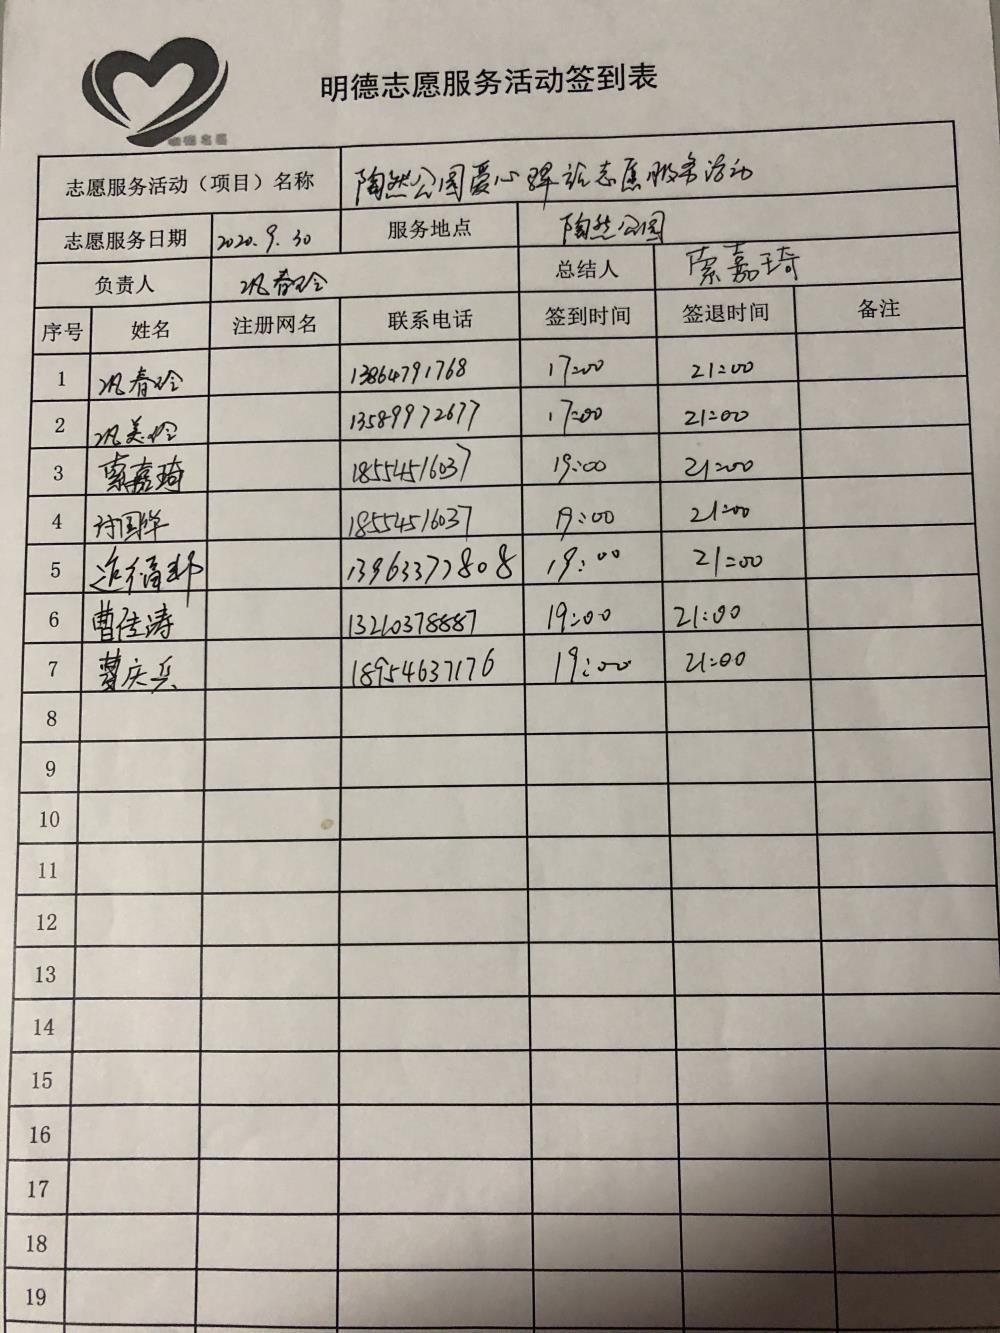 明德志愿服务活动签到表
明德志愿
志愿服务活动（项目）名称 陶然公园爱心驿站志愿服务活动
志愿服务日期 2020.9.30 服务地点 陶然公园
负责人 巩春玲 总结人 索嘉琦
序号 姓名 注册网名 联系电话 签到时间 签退时间 备注
1 巩春玲 13864791768 17:00 21:00
2 巩美玲 13589972677 17:00 21:00
3 索嘉琦 18554516037 19:00 21:00
4 国华 18554516037 19:00 21:00
5 13963377808 19:00 21:00
6 曹佳涛 13210378887 19:00 21:00
7 曹庆兵 18954637176 19:00 21:00
8
9
10
11
12
13
14
15
16
17
18
19